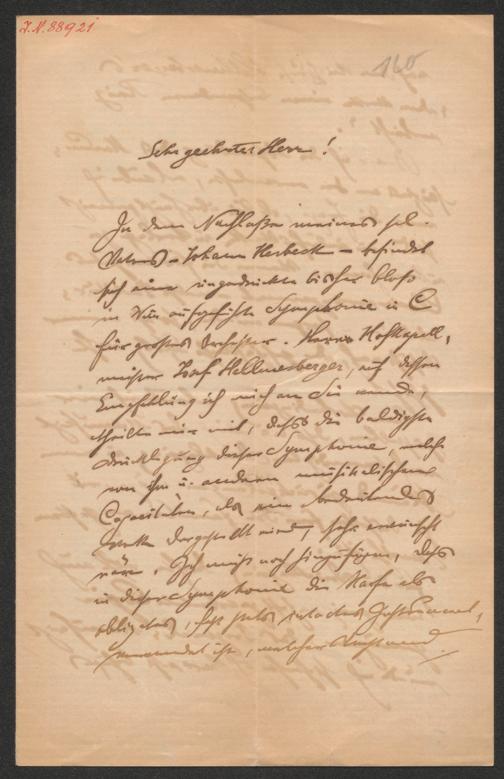 J.N. 88921
160
Sehr geehrter Herr!
In dem Nachlaße meines sel.
Vaters – Johann Herbeck – befindet
sich eine ungedruckte bisher bloß
in Wien aufgeführte Symphonie in C
für großes Orchester. Herr Hofkapell-
meister Josef Hellmesberger, auf dessen
Empfehlung ich mich an Sie wende,
theilte mir mit, daß die baldigste
Drucklegung dieser Symphonie, welche
von ihm u. anderen musikalischen
Capacitäten, als ein bedeutendes
Werk dargestellt wird, sehr erwünscht
wäre. Ich muß noch hinzufügen, daß
in dieser Symphonie die Harfe als
obligates, fast stets Instrument,
verwendet ist, welcher Umstand